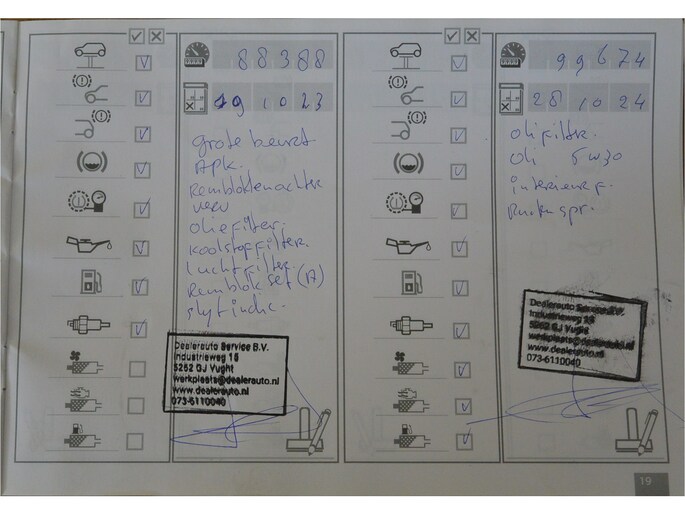 88388
19 10 23
grote beurt
APK.
Remblokken achter
verv
oliefilter.
koolstoffilter.
luchtfilter.
Remblok set (A)
slijt indic.
Dealerauto Service B.V.
Industrieweg 18
5262 GJ Vught
werkplaats@dealerauto.nl
www.dealerauto.nl
073-6110040
99674
28 10 24
oliefilter.
oli 5w30
interieur f.
Dealerauto Service B.V.
Industrieweg 18
5262 GJ Vught
werkplaats@dealerauto.nl
www.dealerauto.nl
073-6110040
19